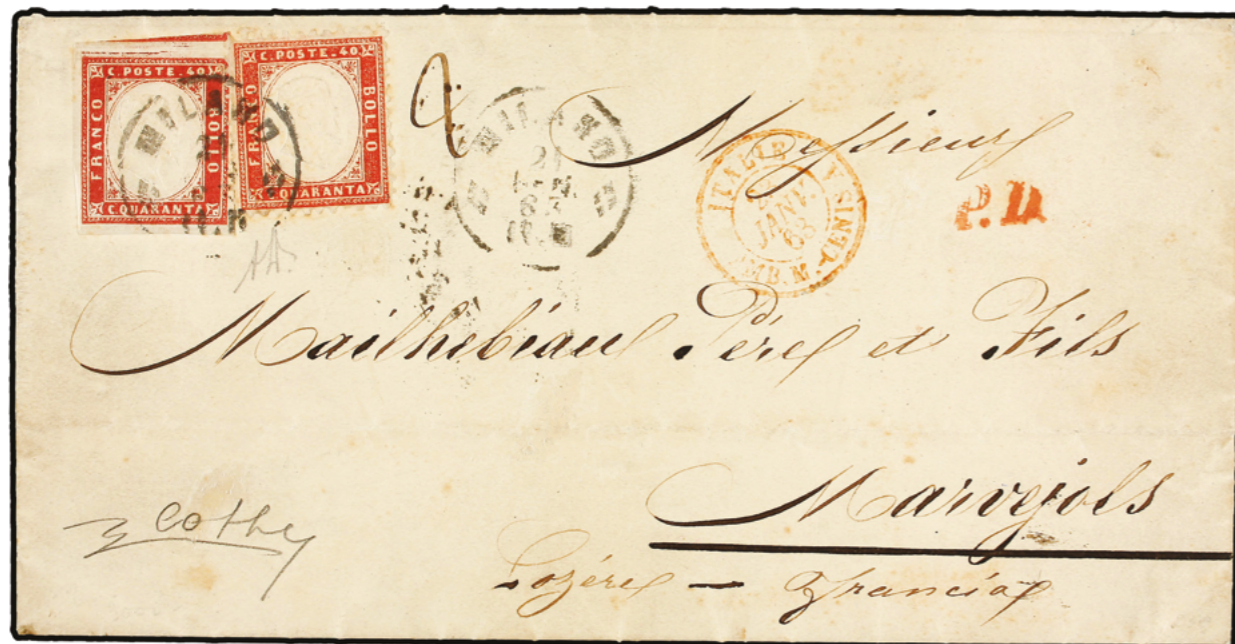 C. POSTE. 40
FRANCO
BOLLO
C. QUARANTA
C. POSTE. 40
FRANCO
BOLLO
C. QUARANTA
MILANO
2
MILANO
21
GEN.
63
ITALIE
JANV.
63
AMB. M. CENIS A
P.D.
Messieurs
Mailhebiau Père et Fils
Marvejols
Lozère — Francia